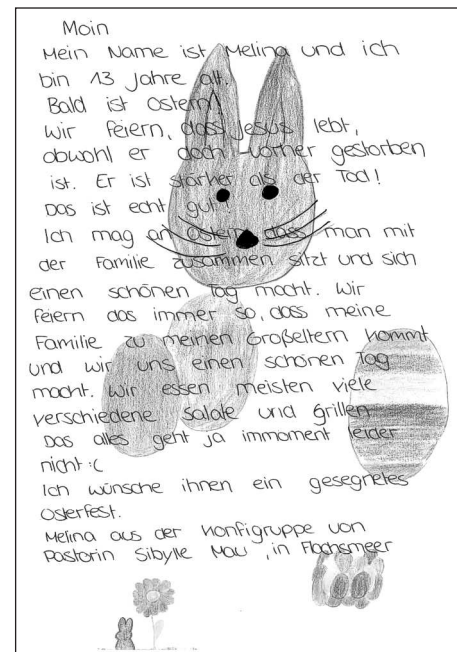 Moin
Mein Name ist Melina und ich
bin 13 Jahre alt.
Bald ist Ostern!
Wir feiern, dass Jesus lebt,
obwohl er doch vorher gestorben
ist. Er ist stärker als der Tod!
Das ist echt gut!
Ich mag an Ostern dass man mit
der Familie zusammen sitzt und sich
einen schönen Tag macht. Wir
feiern das immer so, dass meine
Familie zu meinen Großeltern kommt
und wir uns einen schönen Tag
macht. Wir essen meisten viele
verschiedene Salate und Grillen.
Das alles geht ja immoment leider
nicht :(
Ich wünsche ihnen ein gesegnetes
Osterfest.
Melina aus der Konfigruppe von
Pastorin Sibylle Mau, in Flachsmeer